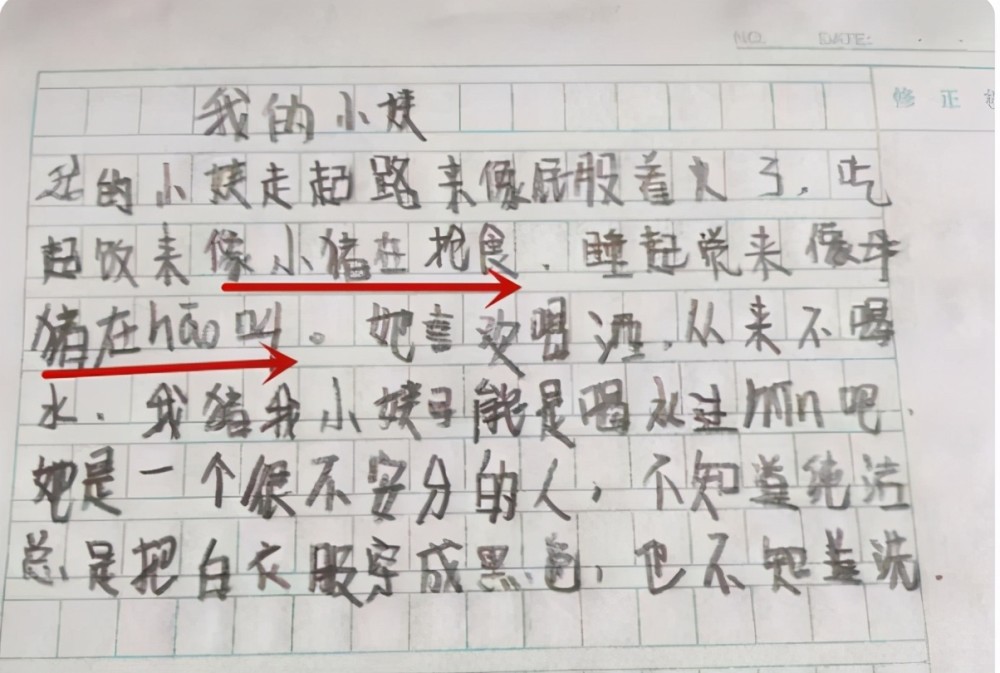 NO. DATE:
修正
我的小姨
我的小姨走起路来像屁股着火了，吃
起饭来像小猪在抢食、睡起觉来像母
猪在hāo叫。她喜欢喝酒，从来不喝
水、我猪我小姨可能是喝水过mǐn吧、
她是一个很不安分的人，不知道纯洁
总是把白衣服穿成黑色，也不知道洗.